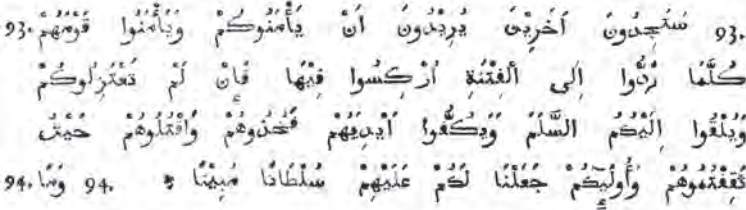 93. سَتَجِدُونَ آخَرِينَ يُرِيدُونَ أَنْ يَأْمَنُوكُمْ وَيَأْمَنُوا قَوْمَهُمْ 93.
كُلَّمَا رُدُّوا إِلَى ٱلْفِتْنَةِ أُرْكِسُوا فِيهَا فَإِنْ لَمْ يَعْتَزِلُوكُمْ
وَيُلْقُوا إِلَيْكُمُ السَّلَمَ وَيَكُفُّوا أَيْدِيَهُمْ فَخُذُوهُمْ وَٱقْتُلُوهُمْ حَيْثُ
ثَقِفْتُمُوهُمْ وَأُولَٰئِكُمْ جَعَلْنَا لَكُمْ عَلَيْهِمْ سُلْطَانًا مُبِينًا * 94. وَمَا 94.